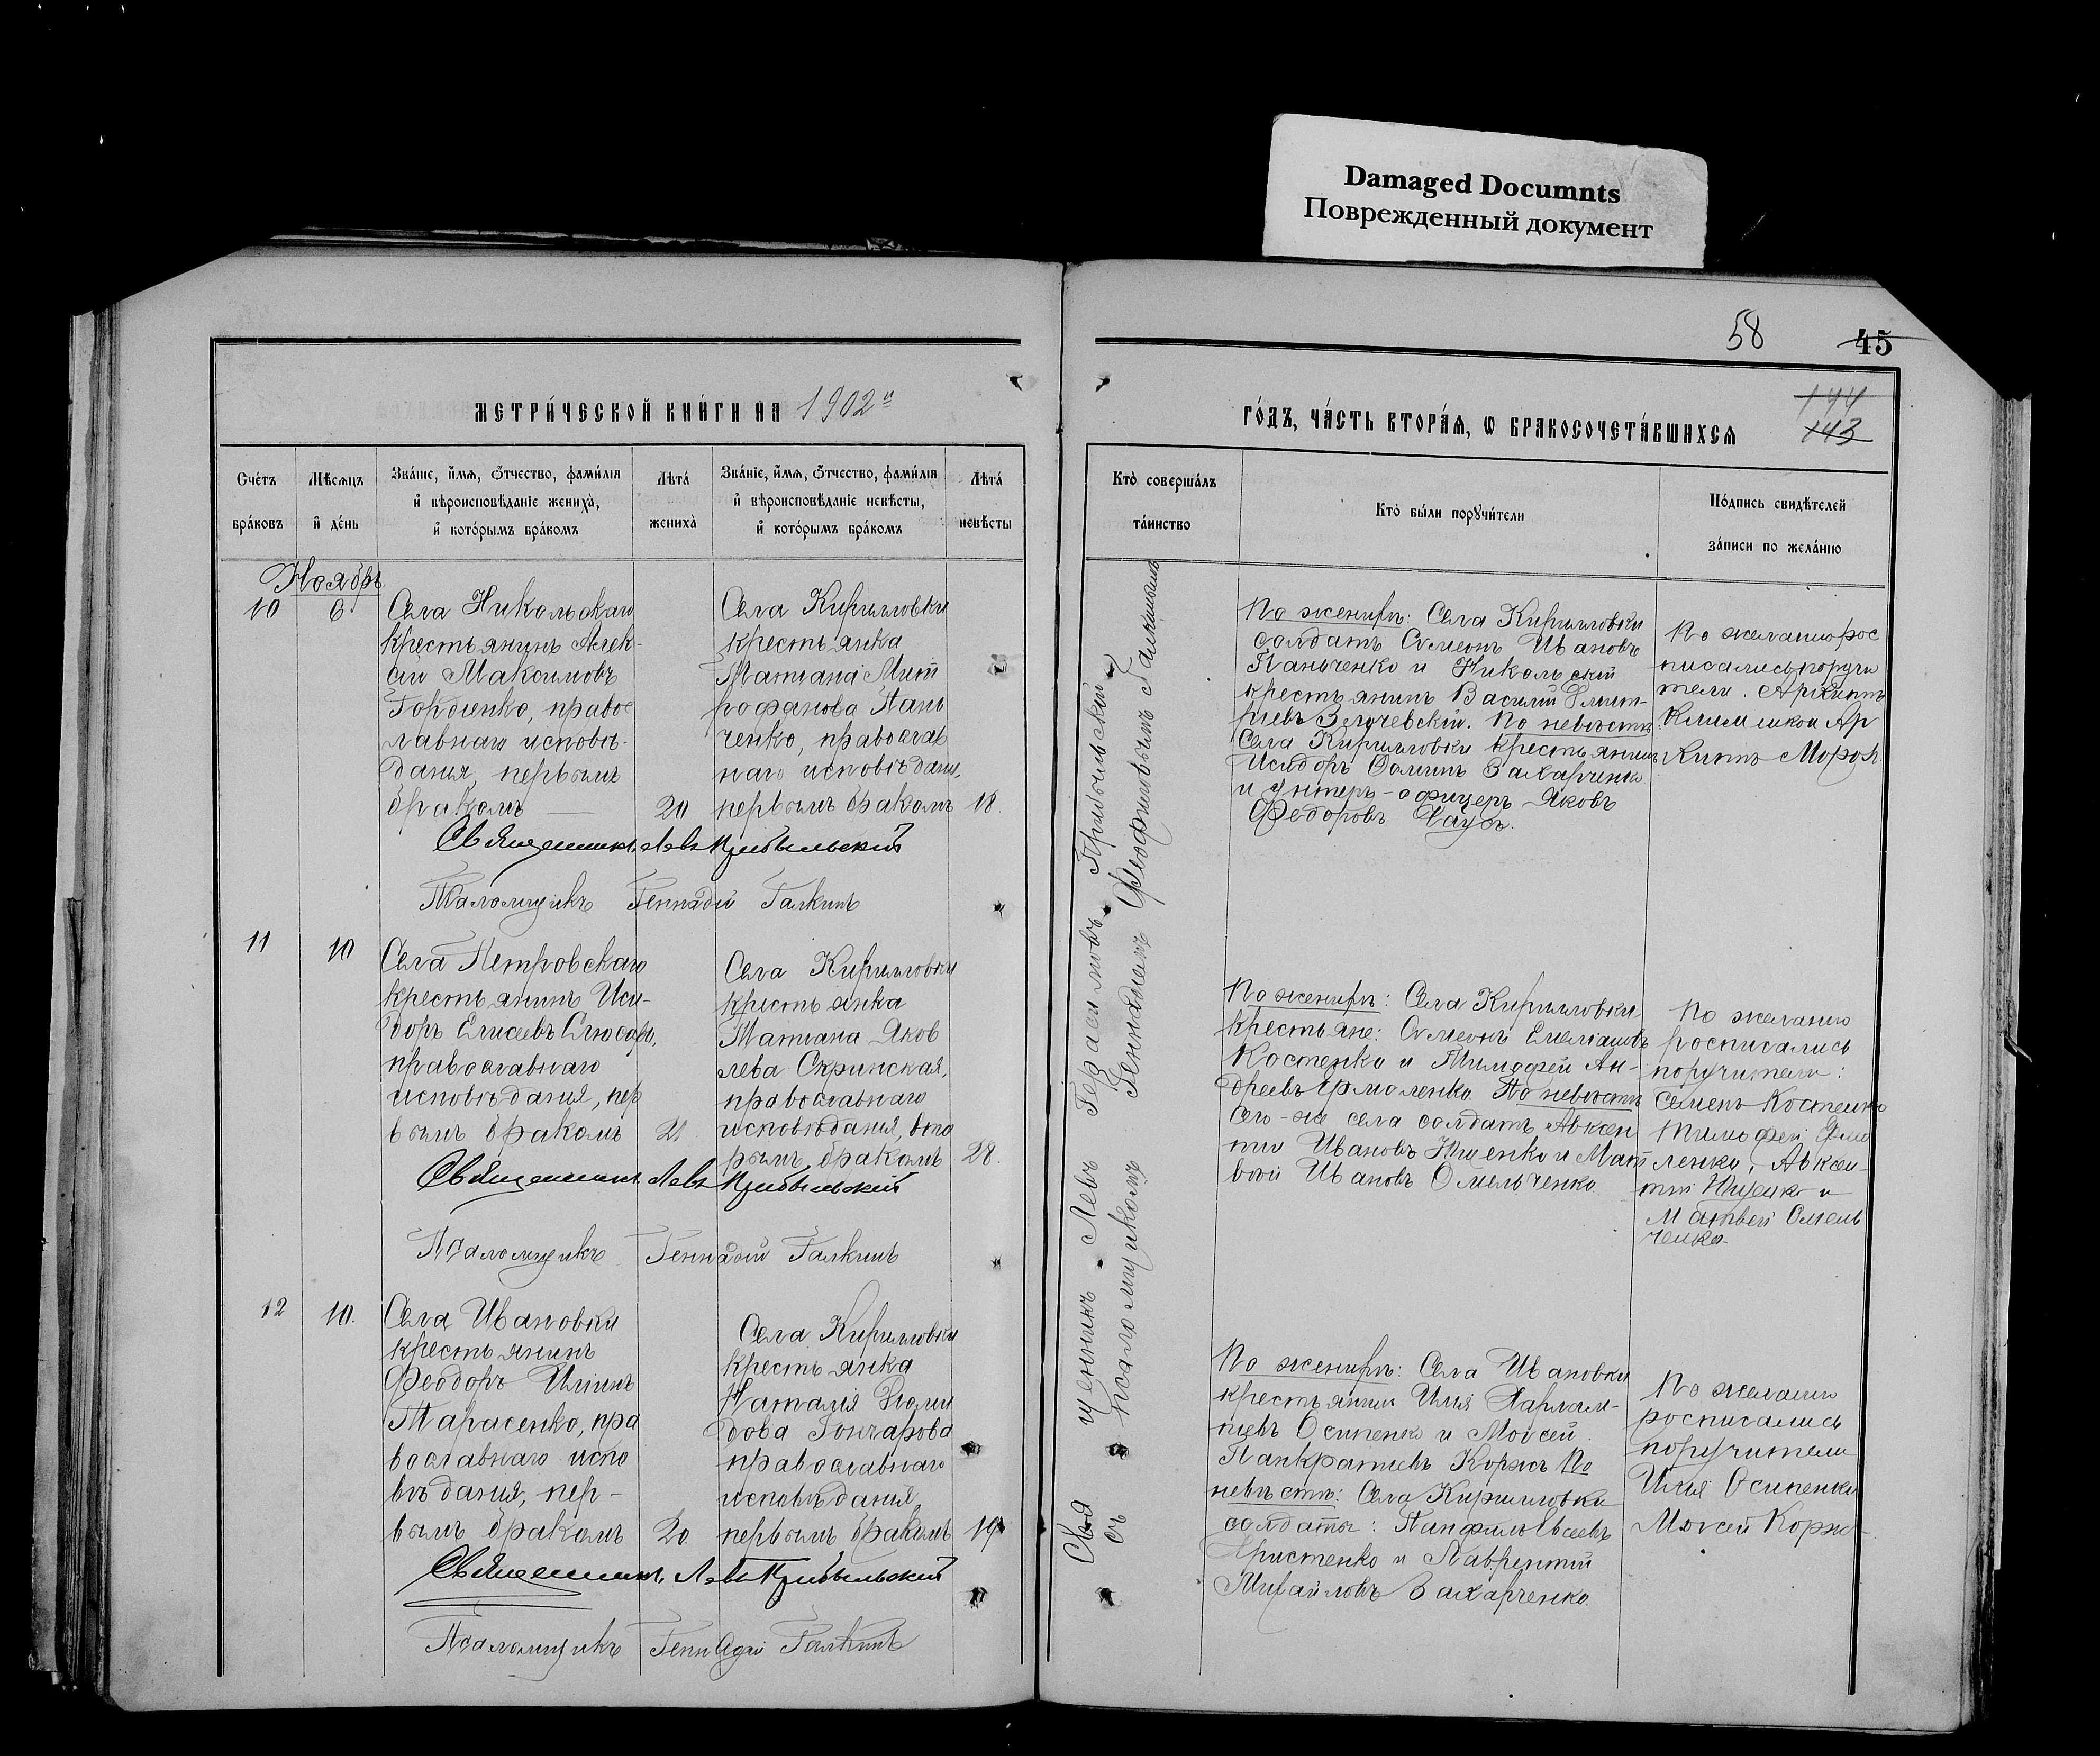 Damaged Documnts
Поврежденный документ
58
45
144
143
МЕТРИЧЕСКОЙ КНИГИ НА 1902й
ГОДЪ, ЧАСТЬ ВТОРАЯ, Ѡ БРАКОСОЧЕТАВШИХСЯ
Счетъ браковъ
Мѣсяцъ и день
Званіе, имя, отчество, фамилія
и вѣроисповѣданіе жениха,
и которымъ бракомъ
Лѣта жениха
Званіе, имя, отчество, фамилія
и вѣроисповѣданіе невѣсты,
и которымъ бракомъ
Лѣта невѣсты
Кто совершалъ таинство
Кто были поручители
Подпись свидѣтелей
записи по желанію
Ноябрь
10
6
Села Никольскаго
крестьянинъ Алек-
сій Максимовъ
Гордіенко, право
славнаго исповѣ-
данія, первымъ
бракомъ
20
Села Кирилловки
крестьянка
Татіана Мит
рофанова Пань
ченко, православ
наго исповѣданія,
первымъ бракомъ
18.
Священникъ Левъ Прибыльскій
Псаломщикъ Геннадій Галкинъ
По женихѣ: Села Кирилловки
солдатъ Симеонъ Ивановъ
Паньченко и Никольскій
крестьянинъ Василій Дмит-
ріевъ По невѣстѣ
Села Кирилловки крестьянинъ
Исидоръ Захарченко
и унтеръ-офицеръ Яковъ
Федоровъ Чаусъ.
По желанію рос
писались поручи
тели. Архипъ
11
10
Села Петровскаго
крестьянинъ Иси-
доръ Елисеевъ Слюсарь,
православнаго
исповѣданія, пер
вымъ бракомъ
21
Села Кирилловки
крестьянка
Татіана Яков
лева Скринская,
православнаго
исповѣданія, вто
рымъ бракомъ
28.
Священникъ Левъ Прибыльскій
Псаломщикъ Геннадій Галкинъ
По женихѣ: Села Кирилловки
крестьяне: Симеонъ Емеліановъ
Костенко и Тимофей Ан-
дреевъ Ермоленко По невѣстѣ
Сего-же села солдатъ Авксен
тій Ивановъ Ющенко и Мат
вей Ивановъ Омельченко
По желанію
росписались
поручители:
Семенъ Костенко
Тимофей Ермо
ленко, Авксен-
тій Ющенко и
Матвей Омель
ченко
12
10.
Села Ивановки
крестьянинъ
Феодоръ Иліинъ
Тарасенко, пра
вославнаго испо
вѣданія, пер-
вымъ бракомъ
20.
Села Кирилловки
крестьянка
Наталія Діоми
дова Гончарова
православнаго
исповѣданія
первымъ бракомъ
19
Священникъ Левъ Прибыльскій
Псаломщикъ Геннадій Галкинъ
По женихѣ: Села Ивановки
крестьянин Илія Харлам-
піевъ Осипенко и Моисей
Панкратіевъ Коржъ По
невѣстѣ: Села Кирилловки
солдаты: Панфилъ Евсеевъ
Христенко и Лаврентій
Михайловъ Захарченко
По желанію
росписались
поручители
Илія Осипенко
Моисей Корж
Священникъ Левъ Герасимовъ Прибыльский
съ псаломщикомъ Геннадіемъ Феофиловымъ Галкинымъ